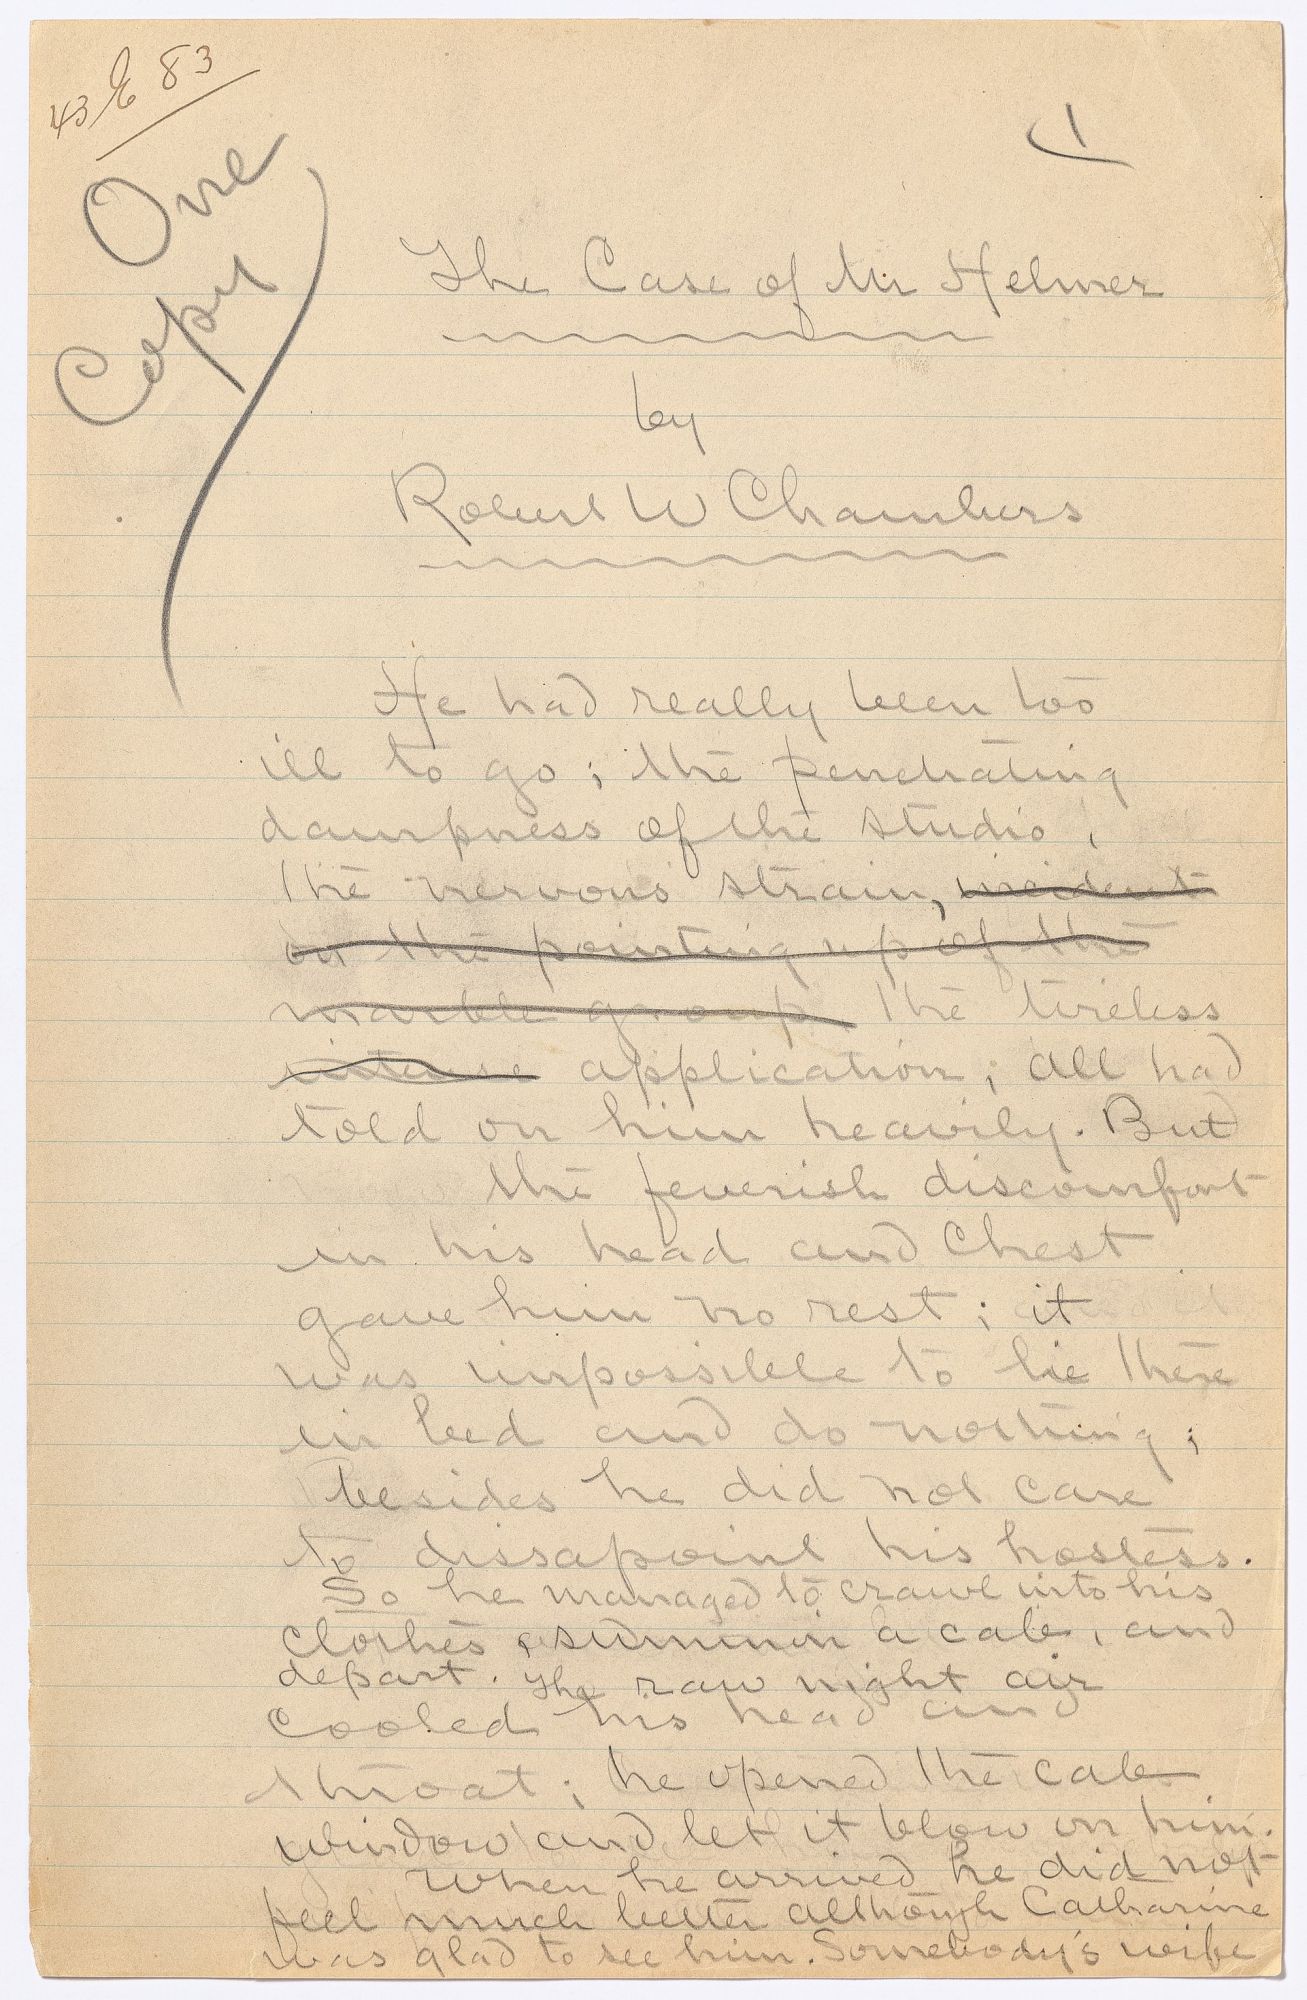 43 E 83
1
One
Copy
The Case of Mr Helmer
by
Robert W Chambers
He had really been too
ill to go; the penetrating
dampness of the studio,
the nervous strain, incident
on the pointing up of the
marble group the tireless
intense application; all had
told on him heavily. But
the feverish discomfort
in his head and chest
gave him no rest; it
was impossible to lie there
in bed and do nothing;
besides he did not care
to dissapoint his hostess.
So he managed to crawl into his
clothes, summon a cab, and
depart. The raw night air
cooled his head and
throat; he opened the cab
window and let it blow on him.
When he arrived he did not
feel much better although Catharine
was glad to see him. Somebody's wife